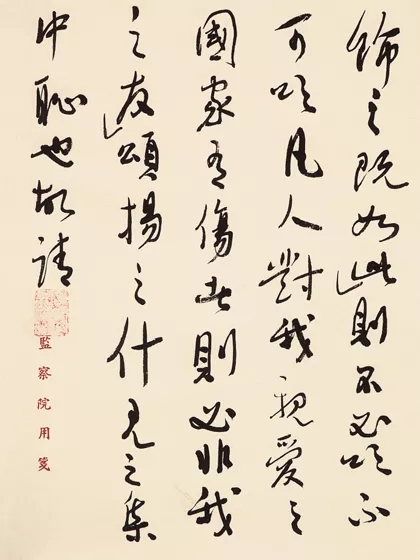 飾之既如此則不必收不
可收凡人對我親愛之
國家有傷者則必非我
之友頌揚之什見之集
中恥也故請
監察院用箋